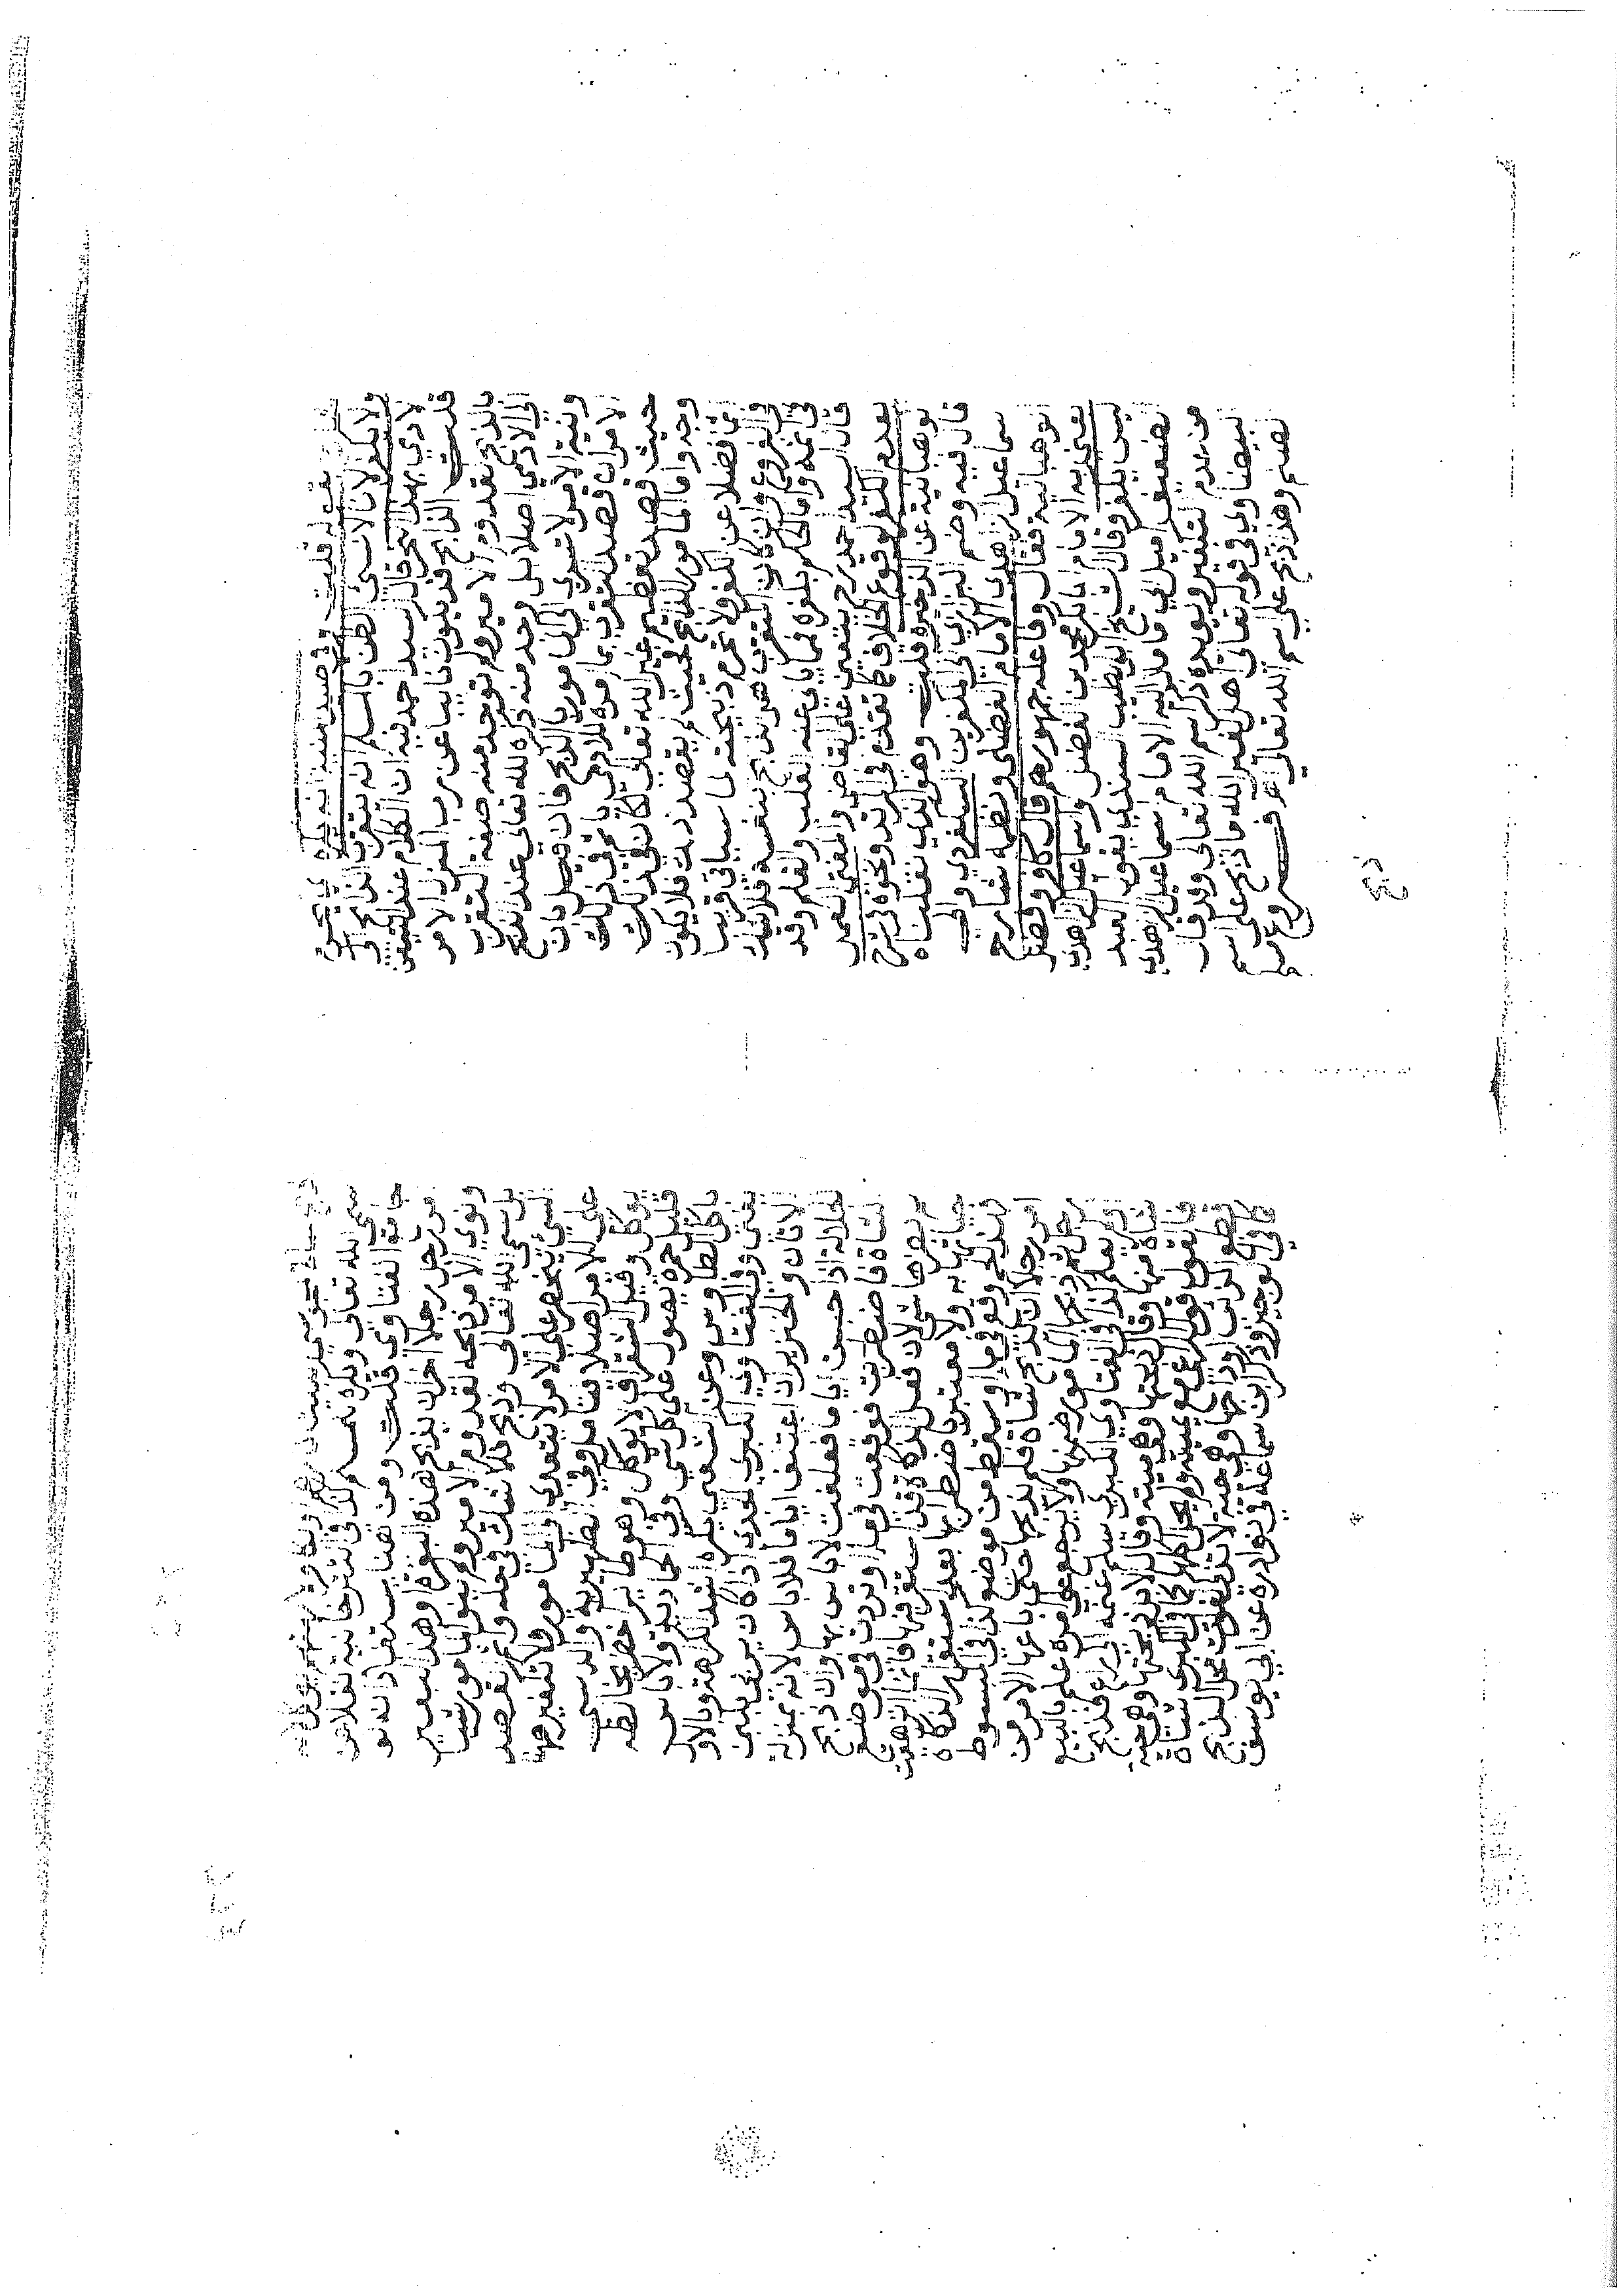 ولا يكفر لانا لا نسئ الظن بالمسلم انه يتقرب الى
الادمي بهذا النحر قال السيد احمد فيه ان الكلام عند التيقن
قلت الذابح قد يكون نايبا عن رب المنزل الامر
بالذبح لقدوم الامير ولم توجد منه صفة التقرب
الى الادمي اصلا بل وجد منه ذكر الله تعالى عند الذبح
ونية الامر لا تسري الى المامور بالذبح فان قيل بان
الامر ان قصد التقرب بما امره للادمي يا ثم في ذلك
حيث قصد تعظيم غير الله تعالى لكان في ذلك
وجه واما المامور الذابح فحيث لم يقصد ذلك فلا يكون
اثما فضلا عن الكفر ولا تحرم ذبيحته لما سياتي قريبا
في الفروع وان كان المتقرب هو الذابح بنفسه فلا شك
في اثمه واما الحكم بكفره فمما يابي عنه القلب والقلم وقد
قال السيد احمد رح يتعين على القاضي والمفتي العمل
بعدم الكفر لوقوع الخلاف كما تقدم في المرتد ونحوه في شرح
الوهبانية عن الذخيرة قلت وهو الذي نقلناه
قال فيه وضم البزازي الى المكفرين السفكردي
سماعيل الزهدي الامام الفضلي ونظمه شارح
الوهبانية فقال وفاعله جمهورهم قال كافر وفضلي
يعني به الامام ابا بكر محمد بن الفضل واسماعيل الزاهدي
ليس يكفر وقال الشيخ ابو الطيب السندي بقوله العبد
الضعيف اميل الى ما مال اليه الامام اسماعيل الزهدي
من عدم التكفير ويويده ذكر اسم الله تعالى وقد قال
البيضاوي في قوله تعالى اهل لغير الله ما ذبح على اسم
الصنم وهذا ذبح على اسم الله تعالى فروع مسلم
ذبح
سمى الله تعالى ويكره للمسلم كذا في التترخانية نقلا عن
جامع الفتاوي قلت ومن هنا يستفاد انه لو
امر رجل رجلا اخر ان يذبح هذه البقرة وهذا البعير
ونوى الامر ذبحه لقدوم الامير ولم ينو المامور شيا
بل سمى الله تعالى وذبح فلا شك في حله واثم القصد
السئ ينحصر على الامر لا يتعدى الى المامور ولا تكفير
على الامر اصلا فتامل وفي الظهيرية والدبسي
يوكل وقيل الشقراق لا يوكل وهو طاير اخضر يخالطه
قليل حمرة يصول على كل شي وفي الحاديه ولا باس
باكل الطاوس وعن الشعبي يكره اشد الكراهة وبالاول
يفتى وفي الفتاوى الكبرى الجدي اذا كان يربي بلبن
الاتان والخنزير ان اعتلف اياما فلا باس لانه بمنزلة
الجلالة اذا حبست اياما فعلفت لا باس بها وان ذبح
شاة فاضطربت فوقعت في ماء او تردت في موضع
لم يضرها شي لان فعل الذكاة قبل استقر فيها فانما انزهق
حياتها به ولا معتبر باضطرابها بعد استقرار الذكاة
فكذلك وقوعها في ماء وسقوطها من موضع كذا في المبسوط
امر رجلا ان يذبح شاة فلم يذبحها حتى باعها الامر من
رجل ثم ذبحها المامور ضمنها ولا يرجع على امره علم بالبيع
او لم يعلم كذا في الفتاوى الكبرى سلم غنمه الى راع فذبح
شاة منها وقال ذبحتها وهي ميتة وقال لا بل ذبحتها وهي حية
فالقول قول الراعي مع يمينه ولم يحل اكلها كذا في الكبرى شاة
قطع الذئب اوداجها وهي حية لا تذكى لفوت محل الذبح
كذا في الوجيز وذكر ابن سماعة في نوادره عن ابي يوسف